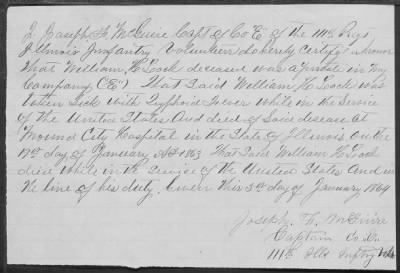 I Joseph F. McGuire Capt of Co "E" of the 111th Regt
Illinois Infantry Volunteers do hereby certify
that William H. deceased was a private in my
Company ("E") That said William H. was
taken sick with Typhoid Fever while in the Service
of the United States And died of Said disease at
Mound City Hospital in the State of Illinois on the
17th day of January AD 1863 That said William H.
died while in the Service of the United States And in
the line of his duty. Given this 3d day of January 1864
Joseph F. McGuire
Captain Co.
111th Ills Inftry Vols